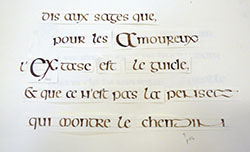 dis aux sages que,
pour les Amoureux
l'Extase est le guide,
& que ce n'est pas la pensée
qui montre le chemin !